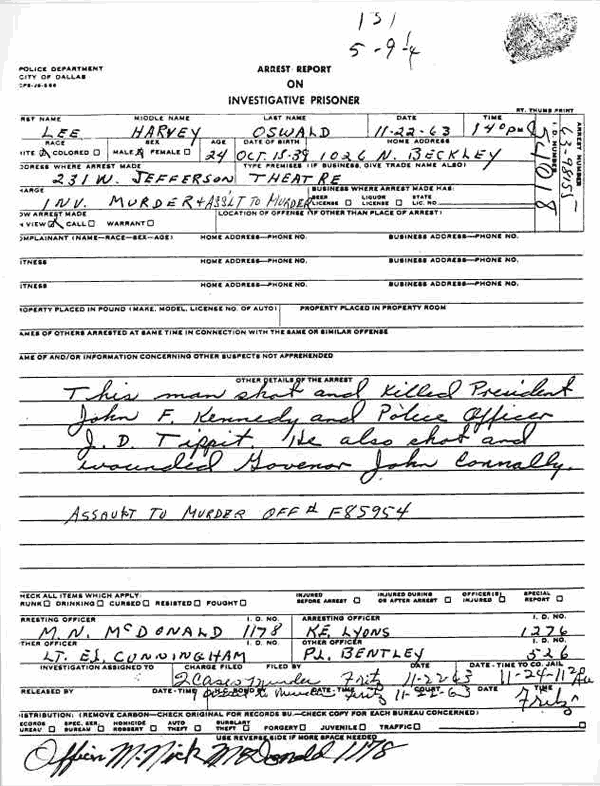 131
5-9-4
POLICE DEPARTMENT
CITY OF DALLAS
ARREST REPORT
ON
INVESTIGATIVE PRISONER
RT. THUMB PRINT
RST NAME MIDDLE NAME LAST NAME DATE TIME
LEE HARVEY OSWALD 11-22-63 1 40 pm
RACE SEX AGE DATE OF BIRTH HOME ADDRESS
ITE COLORED MALE FEMALE 24 OCT. 15-39 1026 N. BECKLEY
DDRESS WHERE ARREST MADE TYPE PREMISES (IF BUSINESS, GIVE TRADE NAME ALSO)
231 W. JEFFERSON THEATRE
HARGE BUSINESS WHERE ARREST MADE HAS:
INV. MURDER + ASS'LT TO MURDER BEER LICENSE LIQUOR LICENSE STATE LIC. NO.
OW ARREST MADE LOCATION OF OFFENSE (IF OTHER THAN PLACE OF ARREST)
N VIEW CALL WARRANT
ARREST NUMBER 63-98155
I.D. NUMBER 54018
OMPLAINANT (NAME—RACE—SEX—AGE) HOME ADDRESS—PHONE NO. BUSINESS ADDRESS—PHONE NO.
ITNESS HOME ADDRESS—PHONE NO. BUSINESS ADDRESS—PHONE NO.
ITNESS HOME ADDRESS—PHONE NO. BUSINESS ADDRESS—PHONE NO.
ROPERTY PLACED IN POUND (MAKE, MODEL, LICENSE NO. OF AUTO) PROPERTY PLACED IN PROPERTY ROOM
AMES OF OTHERS ARRESTED AT SAME TIME IN CONNECTION WITH THE SAME OR SIMILAR OFFENSE
AME OF AND/OR INFORMATION CONCERNING OTHER SUSPECTS NOT APPREHENDED
OTHER DETAILS OF THE ARREST
This man shot and killed President
John F. Kennedy and Police Officer
J. D. Tippit. He also shot and
wounded Govenor John Connally.
ASSAULT TO MURDER OFF # F85954
HECK ALL ITEMS WHICH APPLY: INJURED BEFORE ARREST INJURED DURING OR AFTER ARREST OFFICER(S) INJURED SPECIAL REPORT
RUNK DRINKING CURSED RESISTED FOUGHT
RRESTING OFFICER I. D. NO. ARRESTING OFFICER I. D. NO.
M. N. McDONALD 1178 K.E. LYONS 1276
THER OFFICER I. D. NO. OTHER OFFICER I. D. NO.
LT. E.L. CUNNINGHAM P.L. BENTLEY 526
INVESTIGATION ASSIGNED TO CHARGE FILED FILED BY DATE DATE - TIME TO CO. JAIL
2 Cases Murder Fritz 11-22-63 11-24-1120
RELEASED BY DATE - TIME DATE - TIME COURT DATE TIME
Fritz 11-22-63 Fritz
ISTRIBUTION: (REMOVE CARBON—CHECK ORIGINAL FOR RECORDS BU.—CHECK COPY FOR EACH BUREAU CONCERNED)
ECORDS UREAU SPEC. SER. BUREAU HOMICIDE ROBBERY AUTO THEFT BURGLARY THEFT FORGERY JUVENILE TRAFFIC
USE REVERSE SIDE IF MORE SPACE NEEDED
Officer M. Nick McDonald 1178